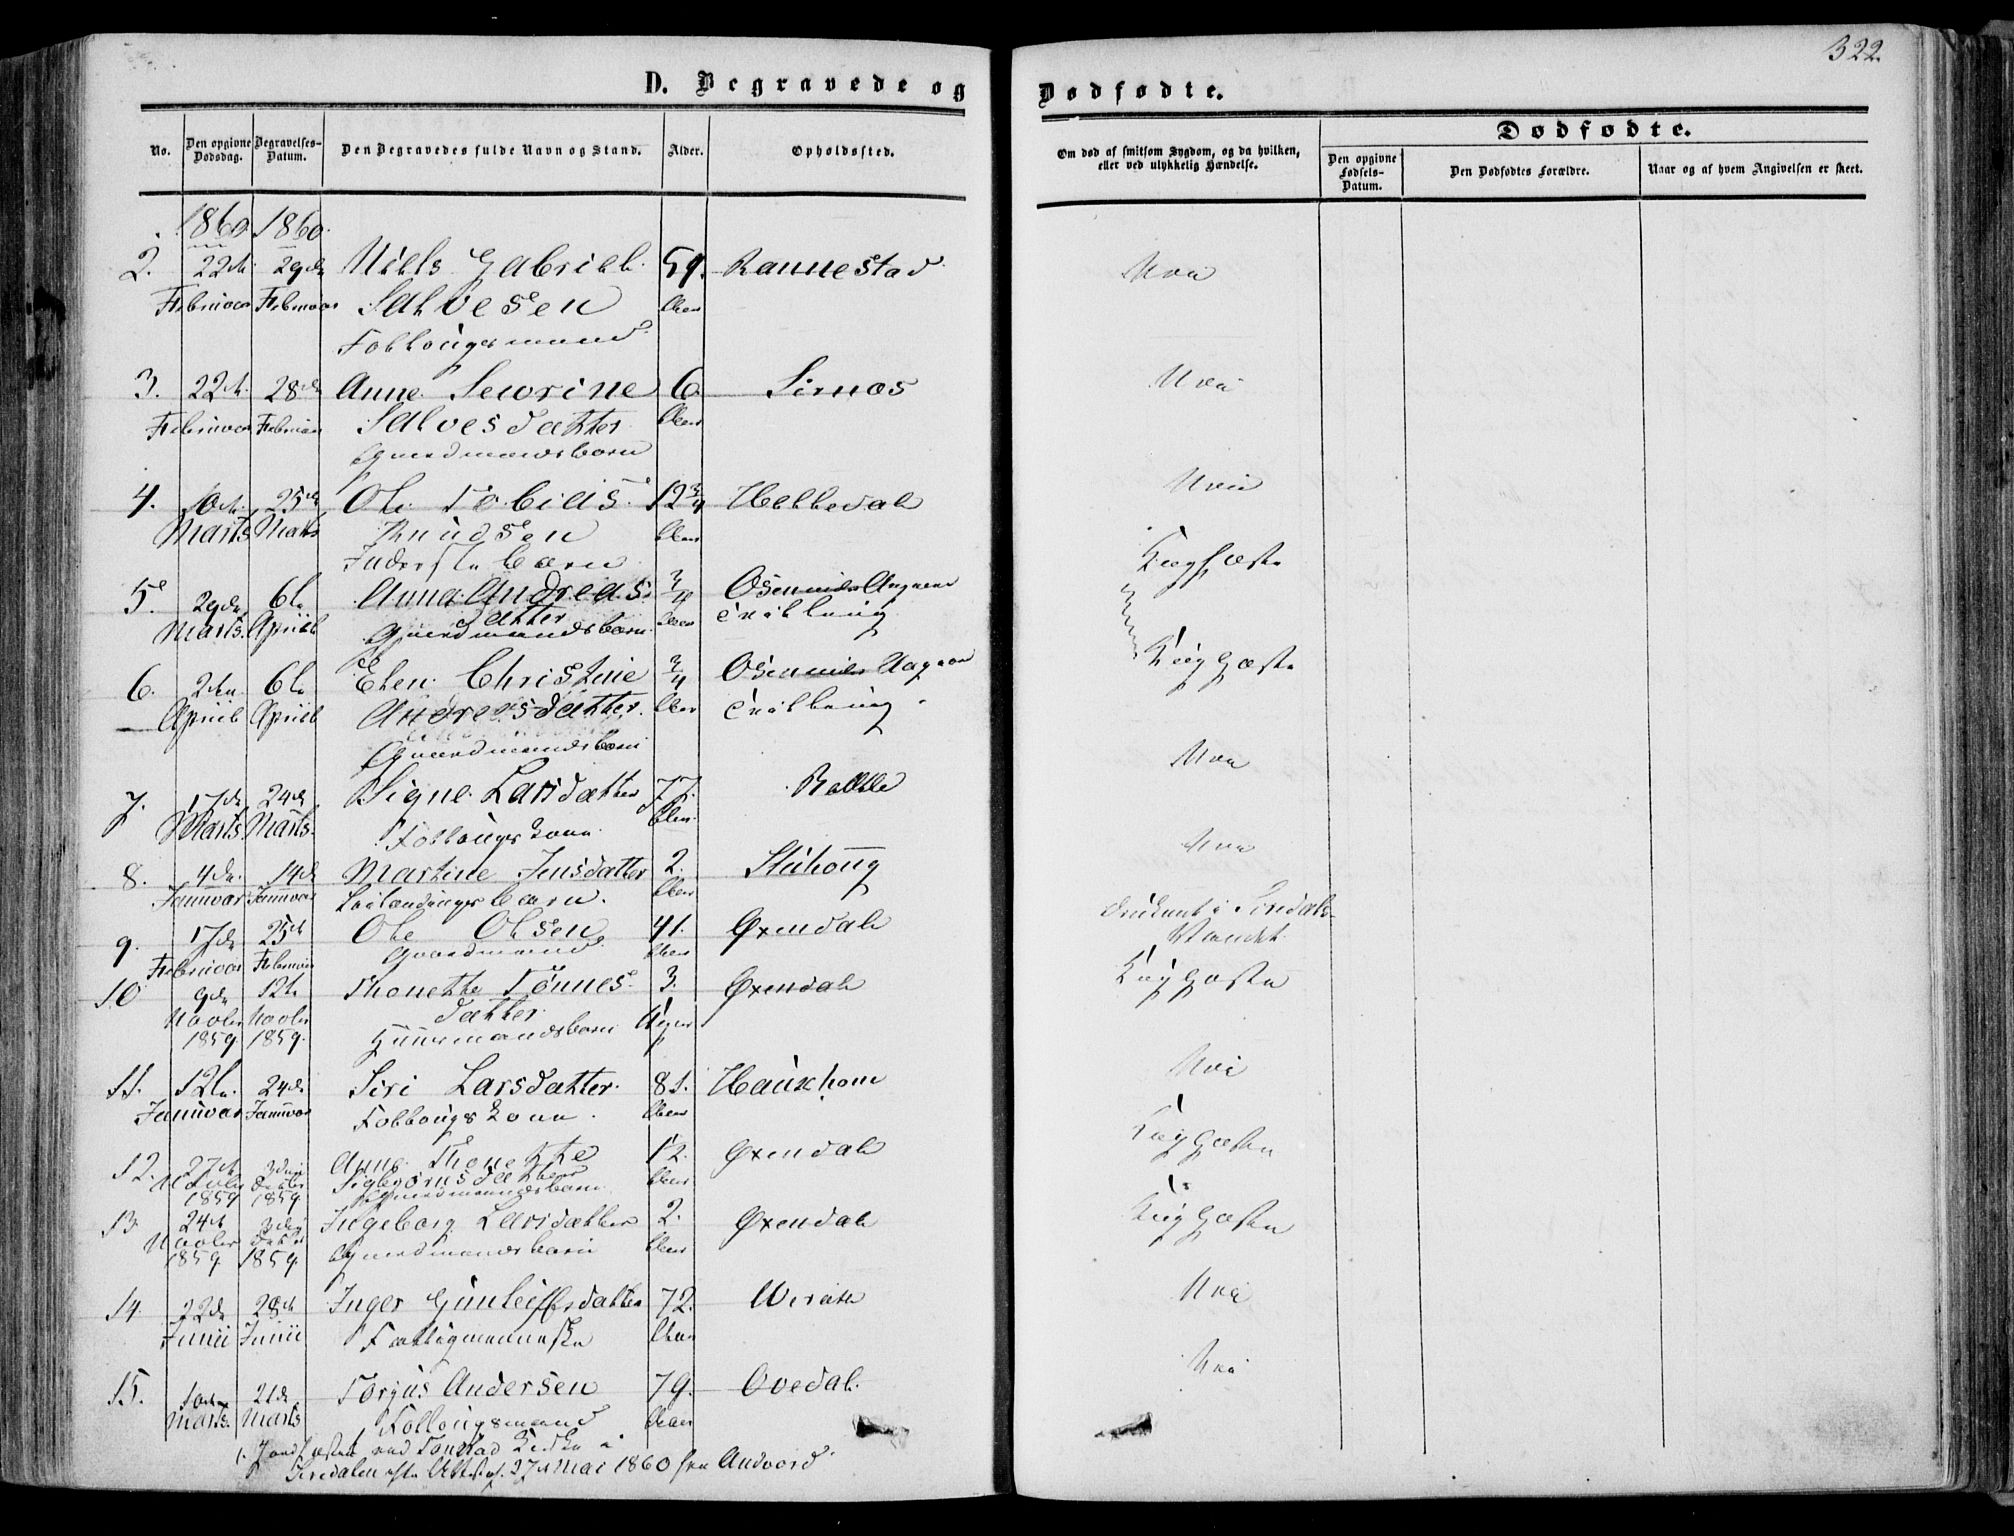 322.
D. Begravede og
Dødfødte.
No.
Den opgivne Dødsdag.
Begravelses-Datum.
Den Begravedes fulde Navn og Stand.
Alder.
Opholdssted.
Om død af smitsom Sygdom, og da hvilken, eller ved ulykkelig Hændelse.
Dødfødte.
Den opgivne Fødsels-Datum.
Den Dødfødtes Forældre.
Naar og af hvem Angivelsen er skeet.
1860 1860.
2. 22de 29de Niels Gabriel 59. Rannestad Nei
Februar Februar Salvesen Aar
Follougsmand
3. 22de 28de Anne Sevrine 6 Sirnæs Nei
Februar Februar Salvesdatter Aar
Gaardmandsbarn
4. 10de 25de Ole Tobias 12 3/4 Helledal Nei
Marts Marts Knudsen Aar
Inderste barn
5. 29de 6te Anna Andreas- 3/4 Kighoste
Marts April datter Aar
Gaardmandsbarn
6. 2den 6te Elen Christine 3/4 Kighoste
April April Andreasdatter Aar
Gaardmandsbarn
7. 17de 24de Signe Larsdatter 77. Nei
Marts Marts. Follougskone Aar
8. 4de 14de Martine Jensdatter 2. Nei
Januar Januar barn. Aar
9. 17de 25de Ole Olsen 41. Øxendal druknet i Siredals-
Februar Februar Gaardmand Aar Vandet.
10 9de 12te Thonette Tønnes- 3. Øxendal Kighoste
Novbr Novbr datter Uger
1859 1859. Huusmandsbarn
11. 12te 24de Siri Larsdatter. 81. Haughom Nei
Januar Januar Follougskone. Aar
12. 27de 3die Anne Thonette 12. Øxendal Kighoste
Novbr Decbr Sigbjørnsdatter Aar
1859 1859 Gaardmandsbarn
13. 24de 3die Ingeborg Larsdatter 2. Øxendal Kighoste
Novbr Decbr Gaardmandsbarn Aar
1859 1859.
14. 22de 28de Inger Gunleifsdatter 72. Nei
Junii Junii Aar
15. 10de 21de Torjus Andersen 79. Ovedal. Nei
Marts Marts Follougsmand Aar
1. Jordfæstet ved Tonstad Kirke i
Siredalen efter Attest af 27de Mai 1860 fra